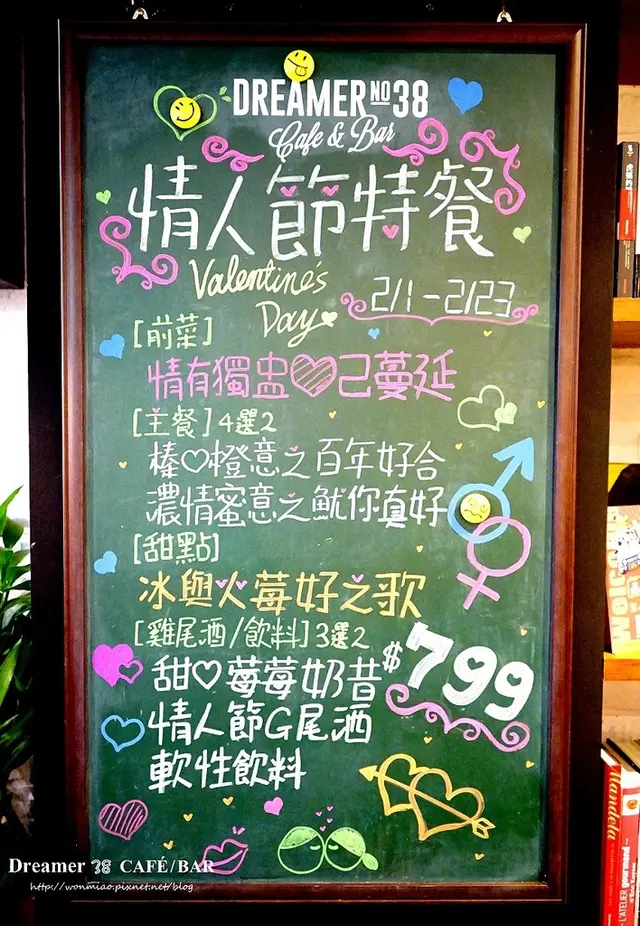 DREAMER NO 38
Cafe & Bar
情人節特餐
Valentine's
Day
2/1-2/23
[前菜]
情有獨盅♡己蔓延
[主餐]4選2
榛♡橙意之百年好合
濃情蜜意之魷你真好
[甜點]
冰與火莓好之歌
[雞尾酒/飲料]3選2
甜♡莓莓奶昔
$799
情人節G尾酒
軟性飲料
Dreamer 38 CAFÉ/BAR
http://wonmiao.pixnet.net/blog
Mandela
L'ATELIER gourmand